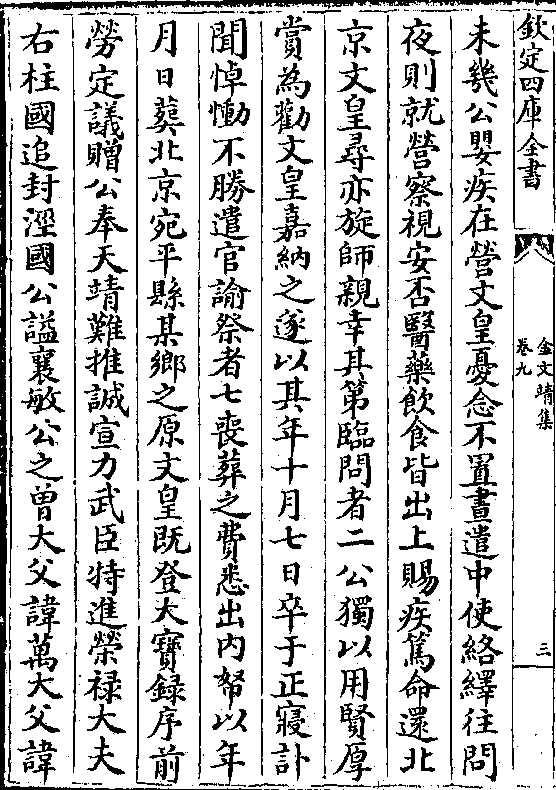 欽定四庫全書
金文靖集
卷九
三
未幾公嬰疾在營文皇憂念不置晝遣中使絡繹往問
夜則就營察視安否醫藥飲食皆出上賜疾篤命還北
京文皇尋亦旋師親幸其第臨問者二公獨以用賢厚
賞為勸文皇嘉納之遂以其年十月七日卒于正寢訃
聞悼慟不勝遣官諭祭者七喪葬之費悉出内帑以年
月日葬北京宛平縣某鄉之原文皇既登大寶録序前
勞定議贈公奉天靖難推誠宣力武臣特進榮禄大夫
右柱國追封涇國公謚襄敏公之曾大父諱萬大父諱